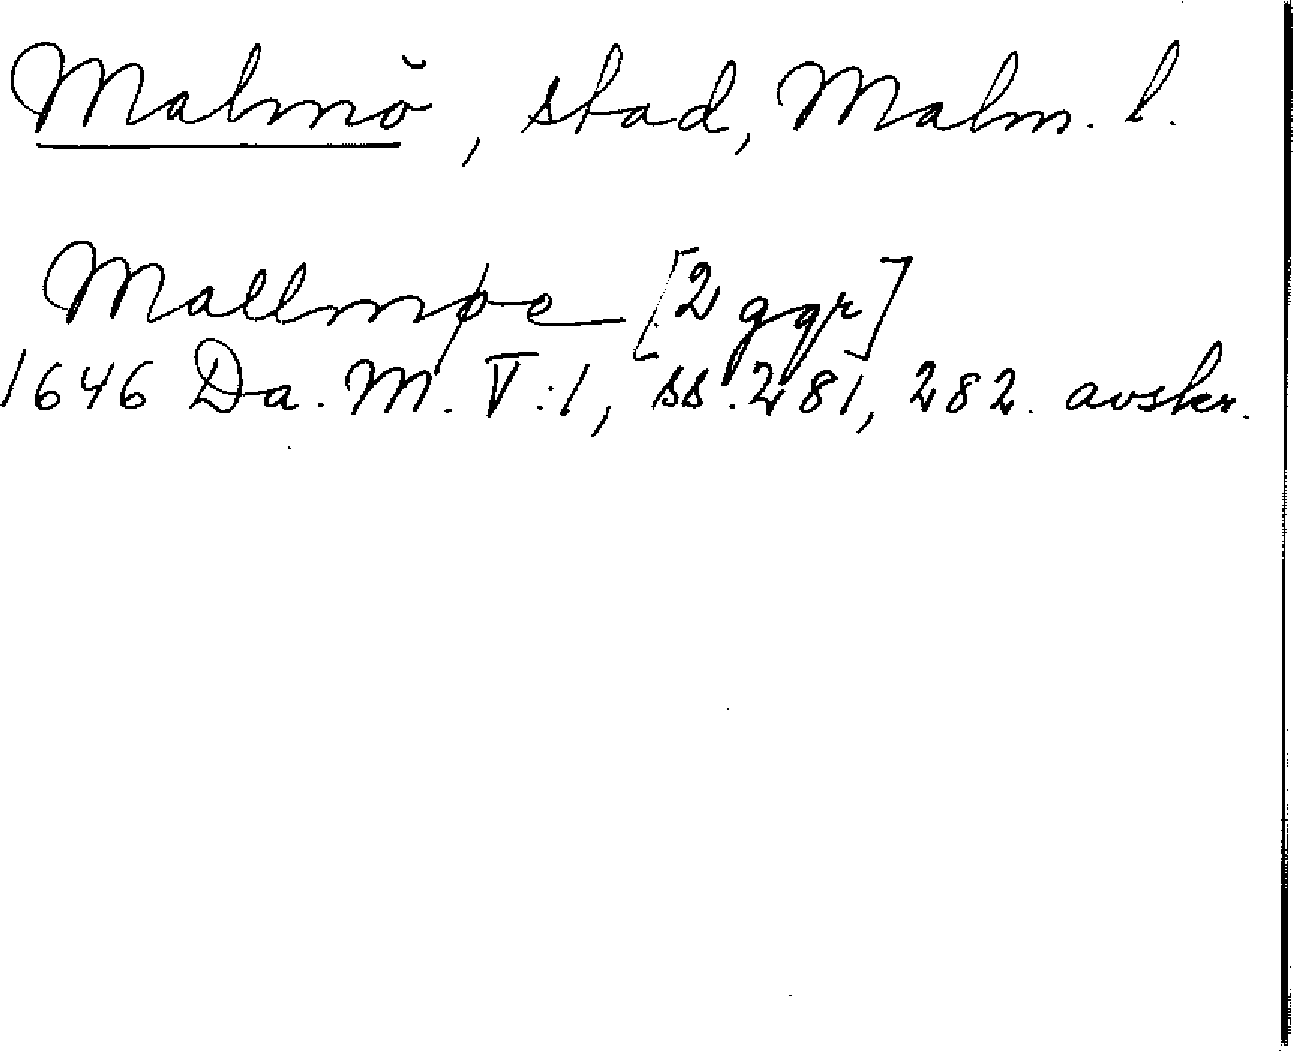 Malmö, stad, Malm. l.
Mallmøe [2 ggr]
1646 Da. M. V:1, ss. 281, 282. avskr.